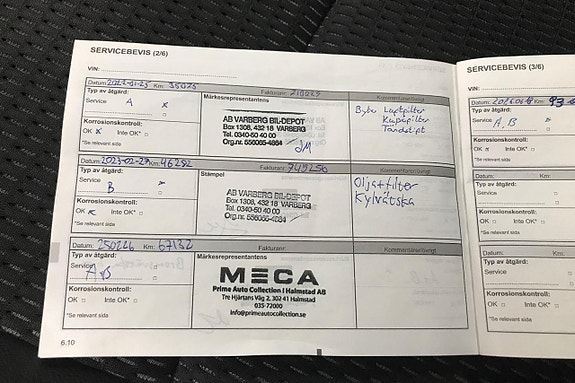 SERVICEBEVIS (2/6)
VIN:
Datum: 2022-01-25 Km: 35025 Fakturanr: Kommentarer/övrigt
Typ av åtgärd:
Service A x
Korrosionskontroll:
OK x Inte OK*
*Se relevant sida
Märkesrepresentantens
AB VARBERG BIL-DEPOT
Box 1308, 432 18 VARBERG
Tel. 0340-50 40 00
Org.nr. 556065-4864
JM
Byte Luftfilter
Kupefilter
Tändstift
Datum: 2023-02-27 Km: 46252 Fakturanr: 745256 Kommentarer/övrigt
Typ av åtgärd:
Service B
Korrosionskontroll:
OK x Inte OK*
*Se relevant sida
Stämpel
AB VARBERG BIL-DEPOT
Box 1308, 432 18 VARBERG
Tel. 0340-50 40 00
Org.nr. 556065-4864
Olja+filter
Kylvätska
Datum: 250226 Km: 67132 Fakturanr: Kommentarer/övrigt
Typ av åtgärd:
Service A+B
Korrosionskontroll:
OK Inte OK*
*Se relevant sida
Märkesrepresentantens
MECA
Prime Auto Collection i Halmstad AB
Tre Hjärtans Väg 2, 302 41 Halmstad
035-72000
info@primeautocollection.se
6.10
SERVICEBEVIS (3/6)
VIN:
Datum: Km:
Typ av åtgärd:
Service A, B
Korrosionskontroll:
OK Inte OK*
*Se relevant sida
Datum:
Typ av åtgärd:
Service
Korrosionskontroll:
OK Inte OK*
*Se relevant sida
Datum:
Typ av åtgärd:
Service
Korrosionskontroll:
OK Inte OK*
*Se relevant sida